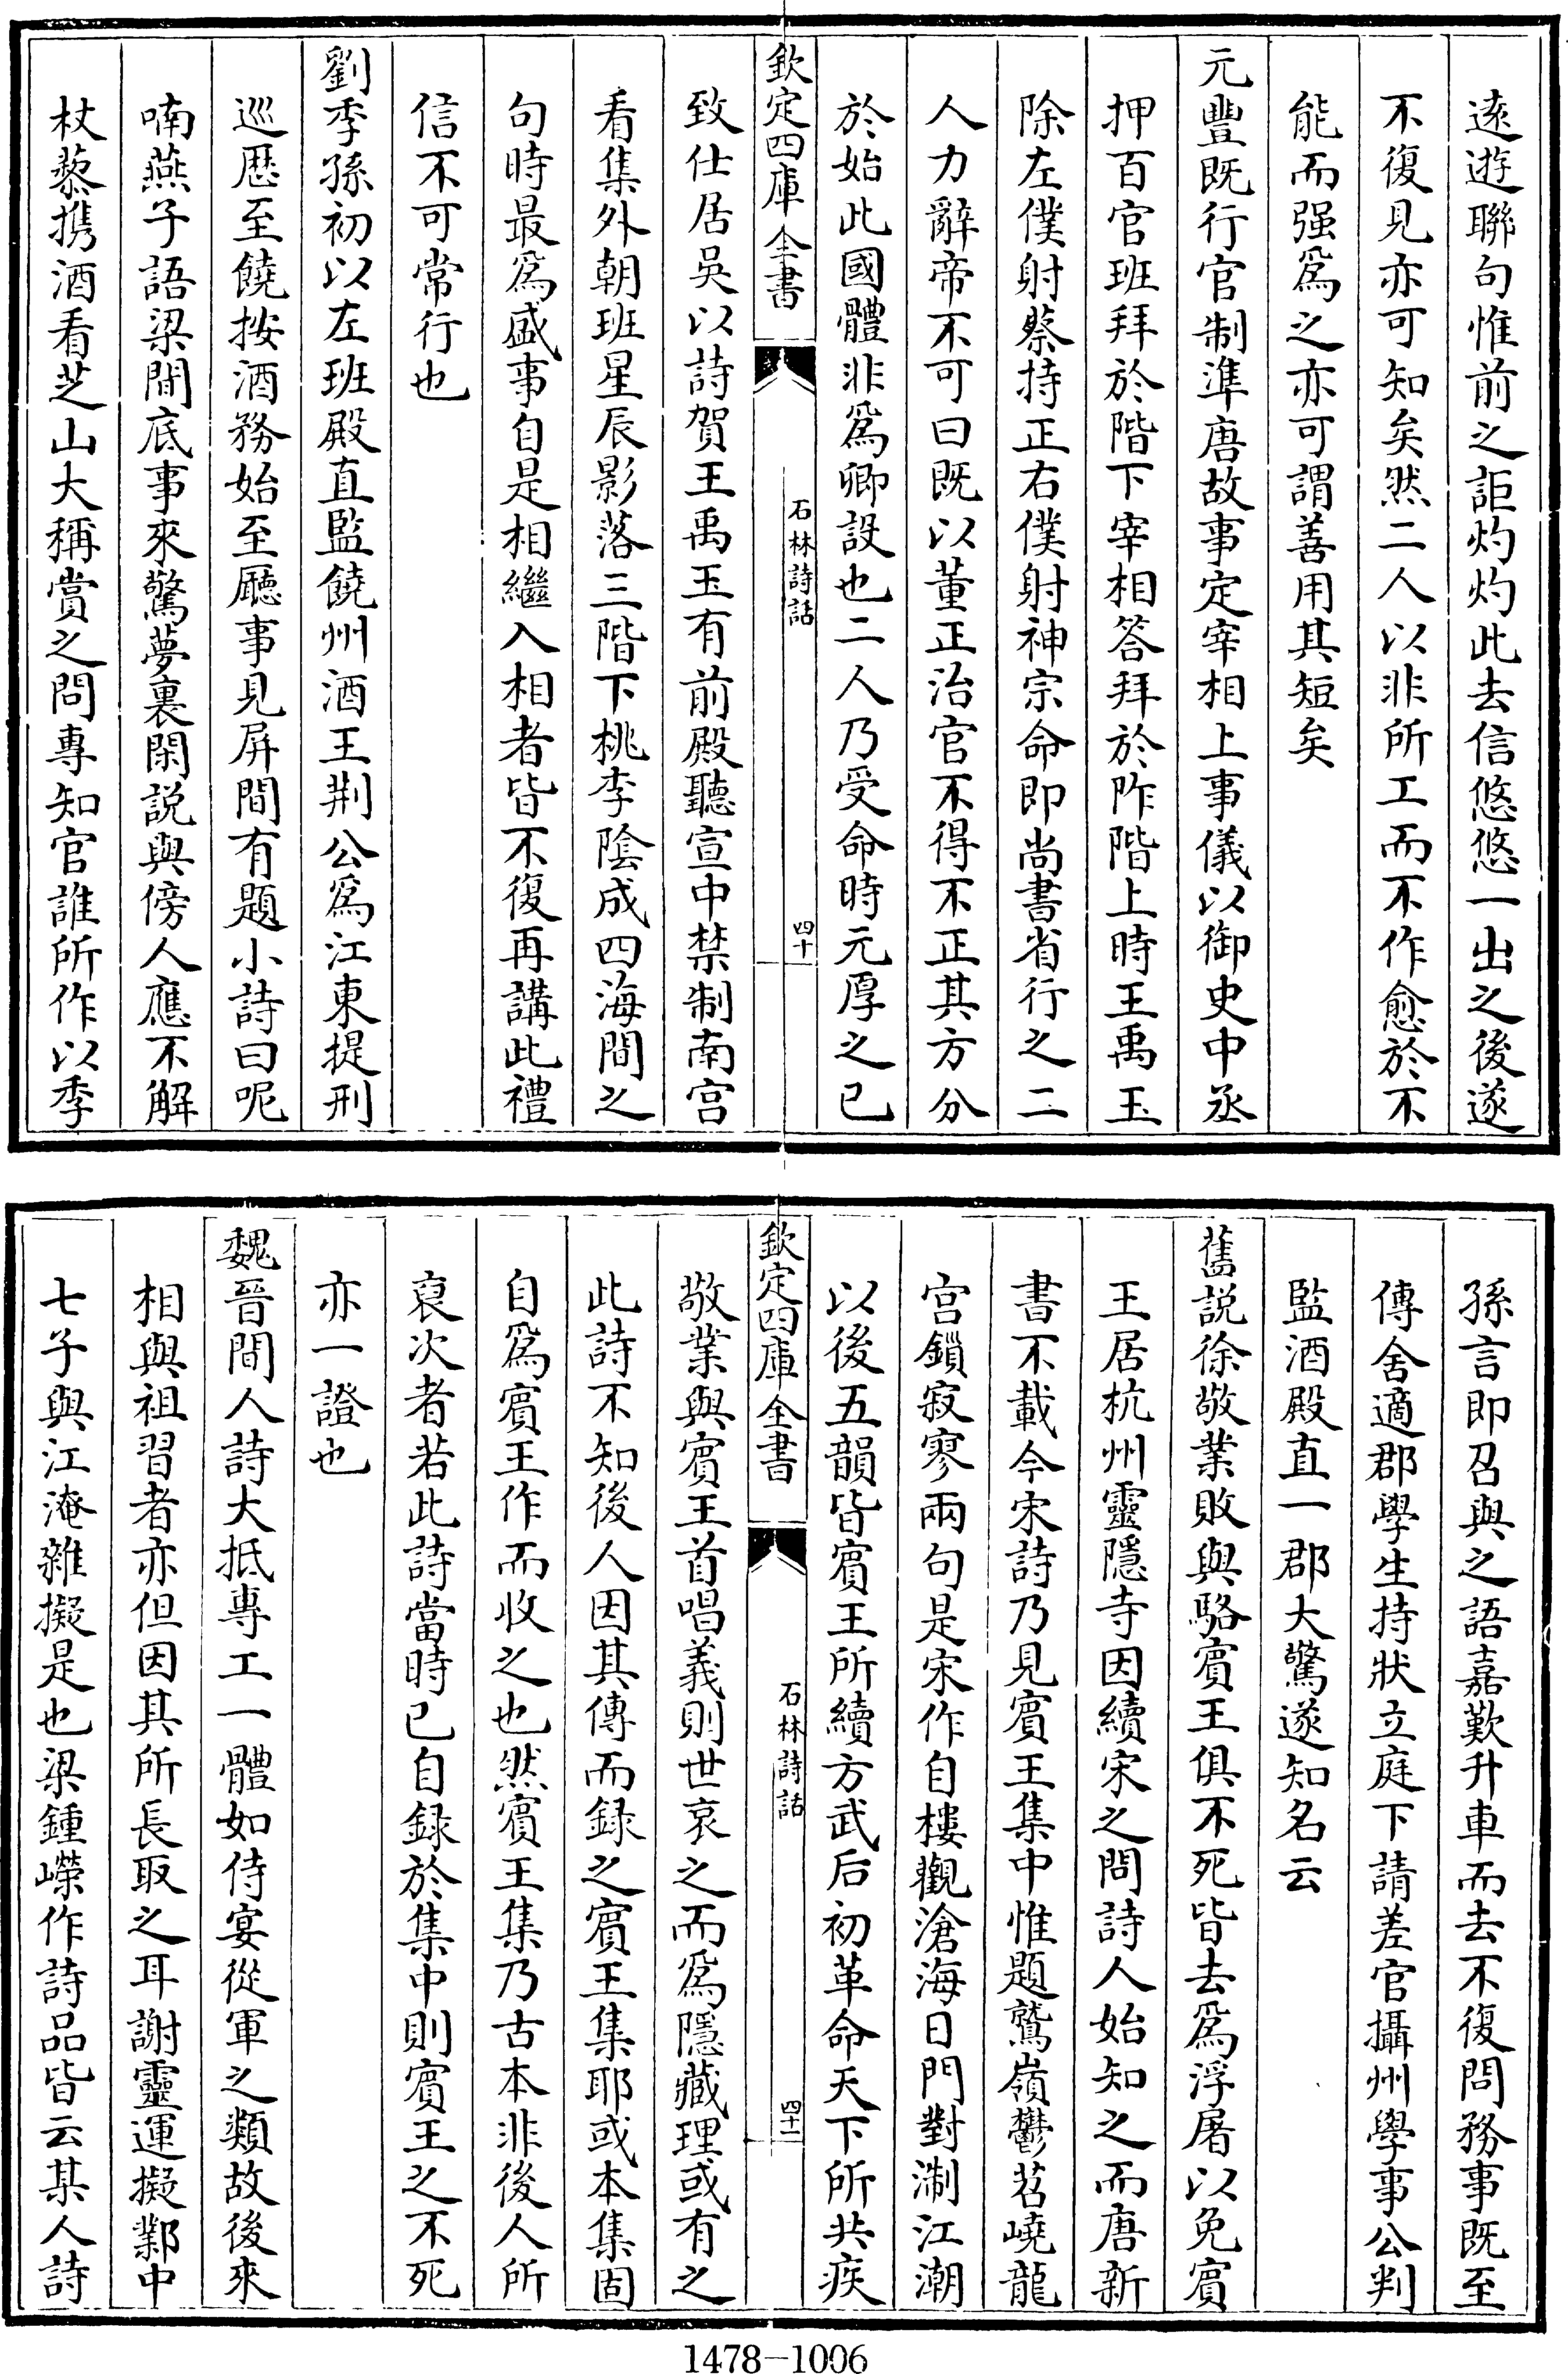 逺逰聯句惟前之詎灼灼此去信悠悠一出之後遂
不復見亦可知矣然二人以非所工而不作愈於不
能而强爲之亦可謂善用其短矣
元豐既行官制凖唐故事定宰相上事儀以御史中丞
押百官班拜於階下宰相答拜於阼階上時王禹玉
除左僕射蔡持正右僕射神宗命即尚書省行之二
人力辭帝不可曰既以董正治官不得不正其方分
於始此國體非爲卿設也二人乃受命時元厚之已
欽定四庫全書
石林詩話
四十
致仕居吳以詩賀王禹玉有前殿聽宣中禁制南宫
看集外朝班星辰影落三階下桃李隂成四海間之
句時最爲盛事自是相繼入相者皆不復再講此禮
信不可常行也
劉季孫初以左班殿直監饒州酒王荆公爲江東提刑
巡歴至饒按酒務始至廳事見屏間有題小詩曰呢
喃燕子語梁間底事來驚夢裏閑説與傍人應不解
杖藜携酒看芝山大稱賞之問專知官誰所作以季
孫言即召與之語嘉歎升車而去不復問務事既至
傳舍適郡學生持狀立庭下請差官攝州學事公判
監酒殿直一郡大驚遂知名云
舊説徐敬業敗與駱賔王俱不死皆去爲浮屠以免賔
王居杭州靈隱寺因續宋之問詩人始知之而唐新
書不載今宋詩乃見賔王集中惟題鷲嶺鬱苕嶢龍
宫鎻寂寥兩句是宋作自樓觀滄海日門對淛江潮
以後五韻皆賔王所續方武后初革命天下所共疾
欽定四庫全書
石林詩話
四十一
敬業與賔王首唱義則世哀之而爲隱藏理或有之
此詩不知後人因其傳而録之賔王集耶或本集固
自爲賔王作而收之也然賔王集乃古本非後人所
裒次者若此詩當時已自録於集中則賔王之不死
亦一證也
魏晉間人詩大抵專工一體如侍宴從軍之類故後來
相與祖習者亦但因其所長取之耳謝靈運擬鄴中
七子與江淹雜擬是也梁鍾嶸作詩品皆云某人詩
1478-1006